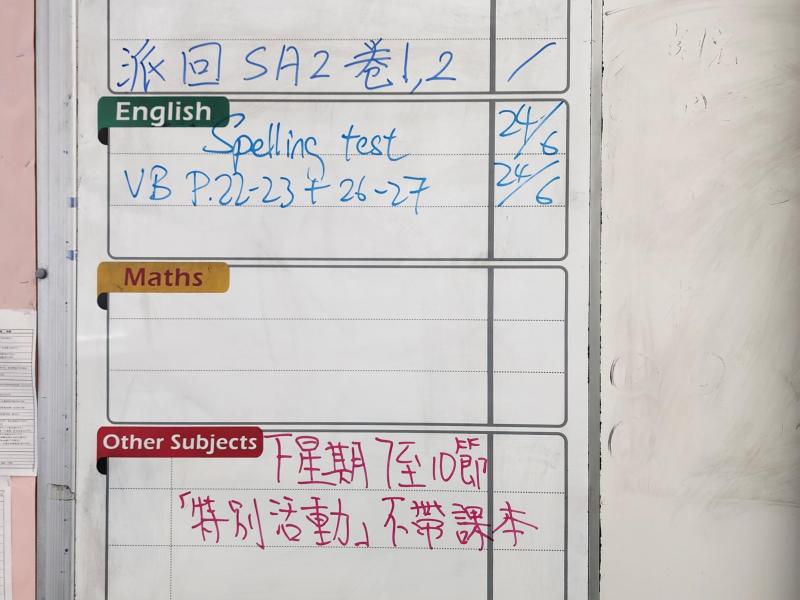 派回 SA2 卷1,2 /
English
Spelling test 24/6
VB P.22-23 + 26-27 24/6
Maths
Other Subjects
下星期 7至10節
「特別活動」不帶課本